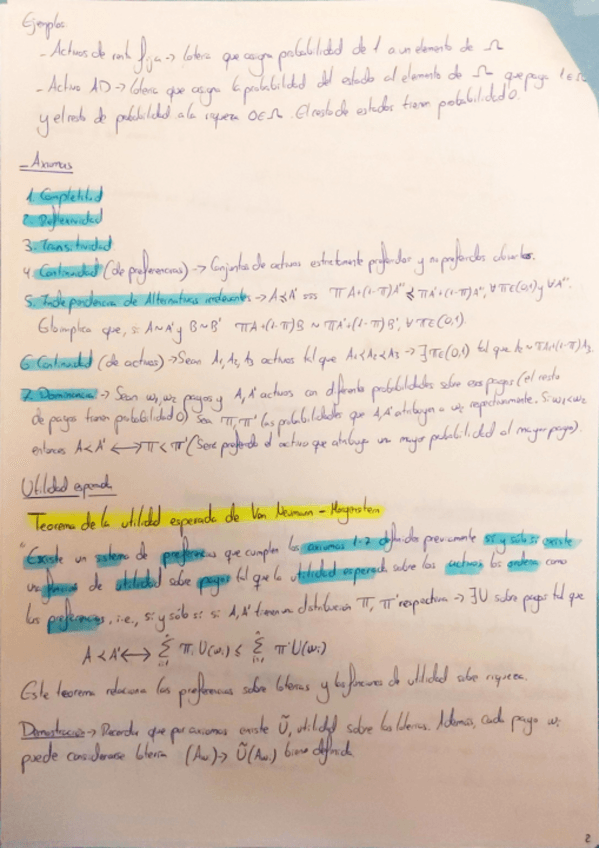 Ejemplos
- Activos de renta fija → lotería que asigna probabilidad de 1 a un elemento de Ω
- Activo AD → lotería que asigna la probabilidad del estado al elemento de Ω que paga 1 ∈ Ω
y el resto de probabilidad a la riqueza 0 ∈ Ω. El resto de estados tienen probabilidad 0.
- Axiomas
1. Completitud
2. Reflexividad
3. Transitividad
4. Continuidad (de preferencias) → Conjuntos de activos estrictamente preferidos y no preferidos abiertos.
5. Independencia de Alternativas irrelevantes → A ≼ A' ⟺ πA+(1-π)A'' ≼ πA'+(1-π)A'', ∀π∈(0,1) y ∀A''.
Ello implica que, si A∼A' y B∼B' πA+(1-π)B ∼ πA'+(1-π)B', ∀π∈(0,1).
6. Continuidad (de activos) → Sean A₁, A₂, A₃ activos tal que A₁≺A₂≺A₃ → ∃π∈(0,1) tal que A₂∼πA₁+(1-π)A₃.
7. Dominancia → Sean w₁, w₂ pagos y A, A' activos con diferente probabilidades sobre esos pagos (el resto
de pagos tienen probabilidad 0) Sean π, π' las probabilidades que A, A' atribuyen a w₂ respectivamente. Si w₁<w₂
entonces A≺A' ⟷ π<π' (Será preferido el activo que atribuya una mayor probabilidad al mayor pago).
Utilidad esperada
Teorema de la utilidad esperada de Von Neumann - Morgenstern
"Existe un sistema de preferencias que cumplen los axiomas 1-7 definidos previamente si y sólo si existe
una función de utilidad sobre pagos tal que la utilidad esperada sobre los activos los ordena como
las preferencias, i.e., si y sólo si: si A, A' tienen distribución π, π' respectiva → ∃U sobre pagos tal que
A ≺ A' ⟷ Σ πᵢ U(wᵢ) ≤ Σ π'ᵢ U(wᵢ)
Este teorema relaciona las preferencias sobre loterías y las funciones de utilidad sobre riqueza.
Demostración → Recordar que por axiomas existe Ũ, utilidad sobre las loterías. Además, cada pago wᵢ
puede considerarse lotería (Awᵢ) → Ũ(Awᵢ) bien definida
2